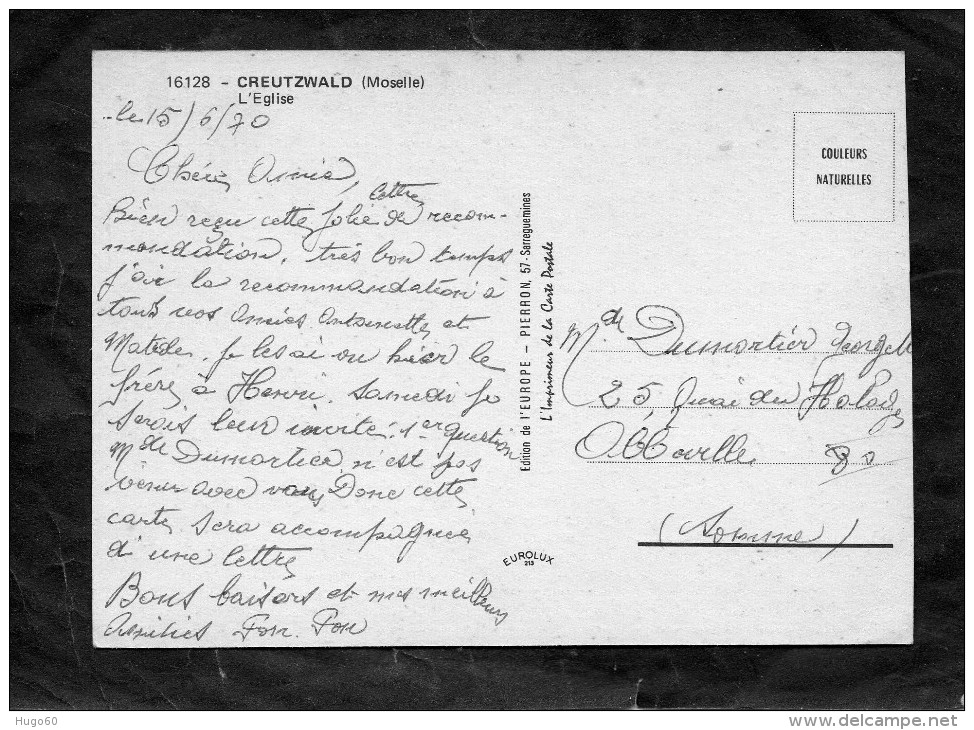 16128 - CREUTZWALD (Moselle)
L'Eglise
le 15/6/70
Chérie Amie,
lettre
Bien reçu cette jolie de recom-
mendation, très bon temps
j'ai la recommandation à
tous vos Amies Antoinette et
je les ai vu hier le
frère à Henri. Samedi je
serais leur invité. 1er question
Mde Dumortier n'est pas
venu avec vous, Donc cette
carte sera accompagnée
d'une lettre
Bons baisers et mes meilleurs
Amitiés Fon. Fon
Edition de l'EUROPE - PIERRON, 57-Sarreguemines
L'Imprimeur de la Carte Postale
EUROLUX
213
COULEURS
NATURELLES
Mde Dumortier
25, Quai du
Abbeville 80
(Somme)
Hugo60
www.delcampe.net